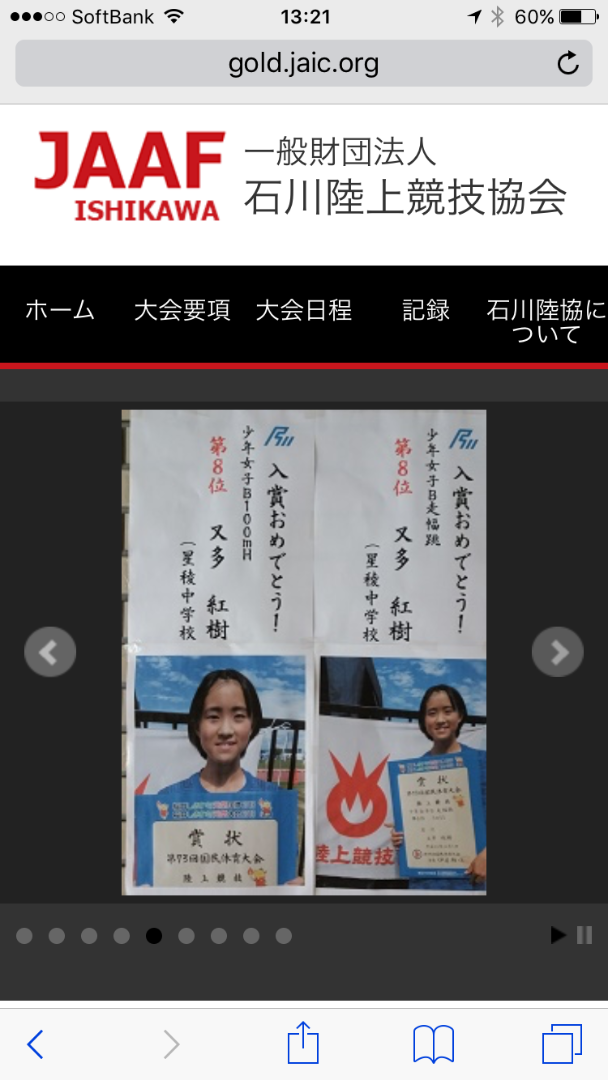 SoftBank
13:21
60%
gold.jaic.org
JAAF
ISHIKAWA
一般財団法人
石川陸上競技協会
ホーム
大会要項
大会日程
記録
石川陸協に
ついて
入賞おめでとう！
少年女子B走幅跳
第8位
又多 紅樹
（星稜中学校
入賞おめでとう！
少年女子B100mH
第8位
又多 紅樹
（星稜中学校
賞状
第73回国民体育大会
陸上競技
賞状
第73回国民体育大会
陸上競技
陸上競技